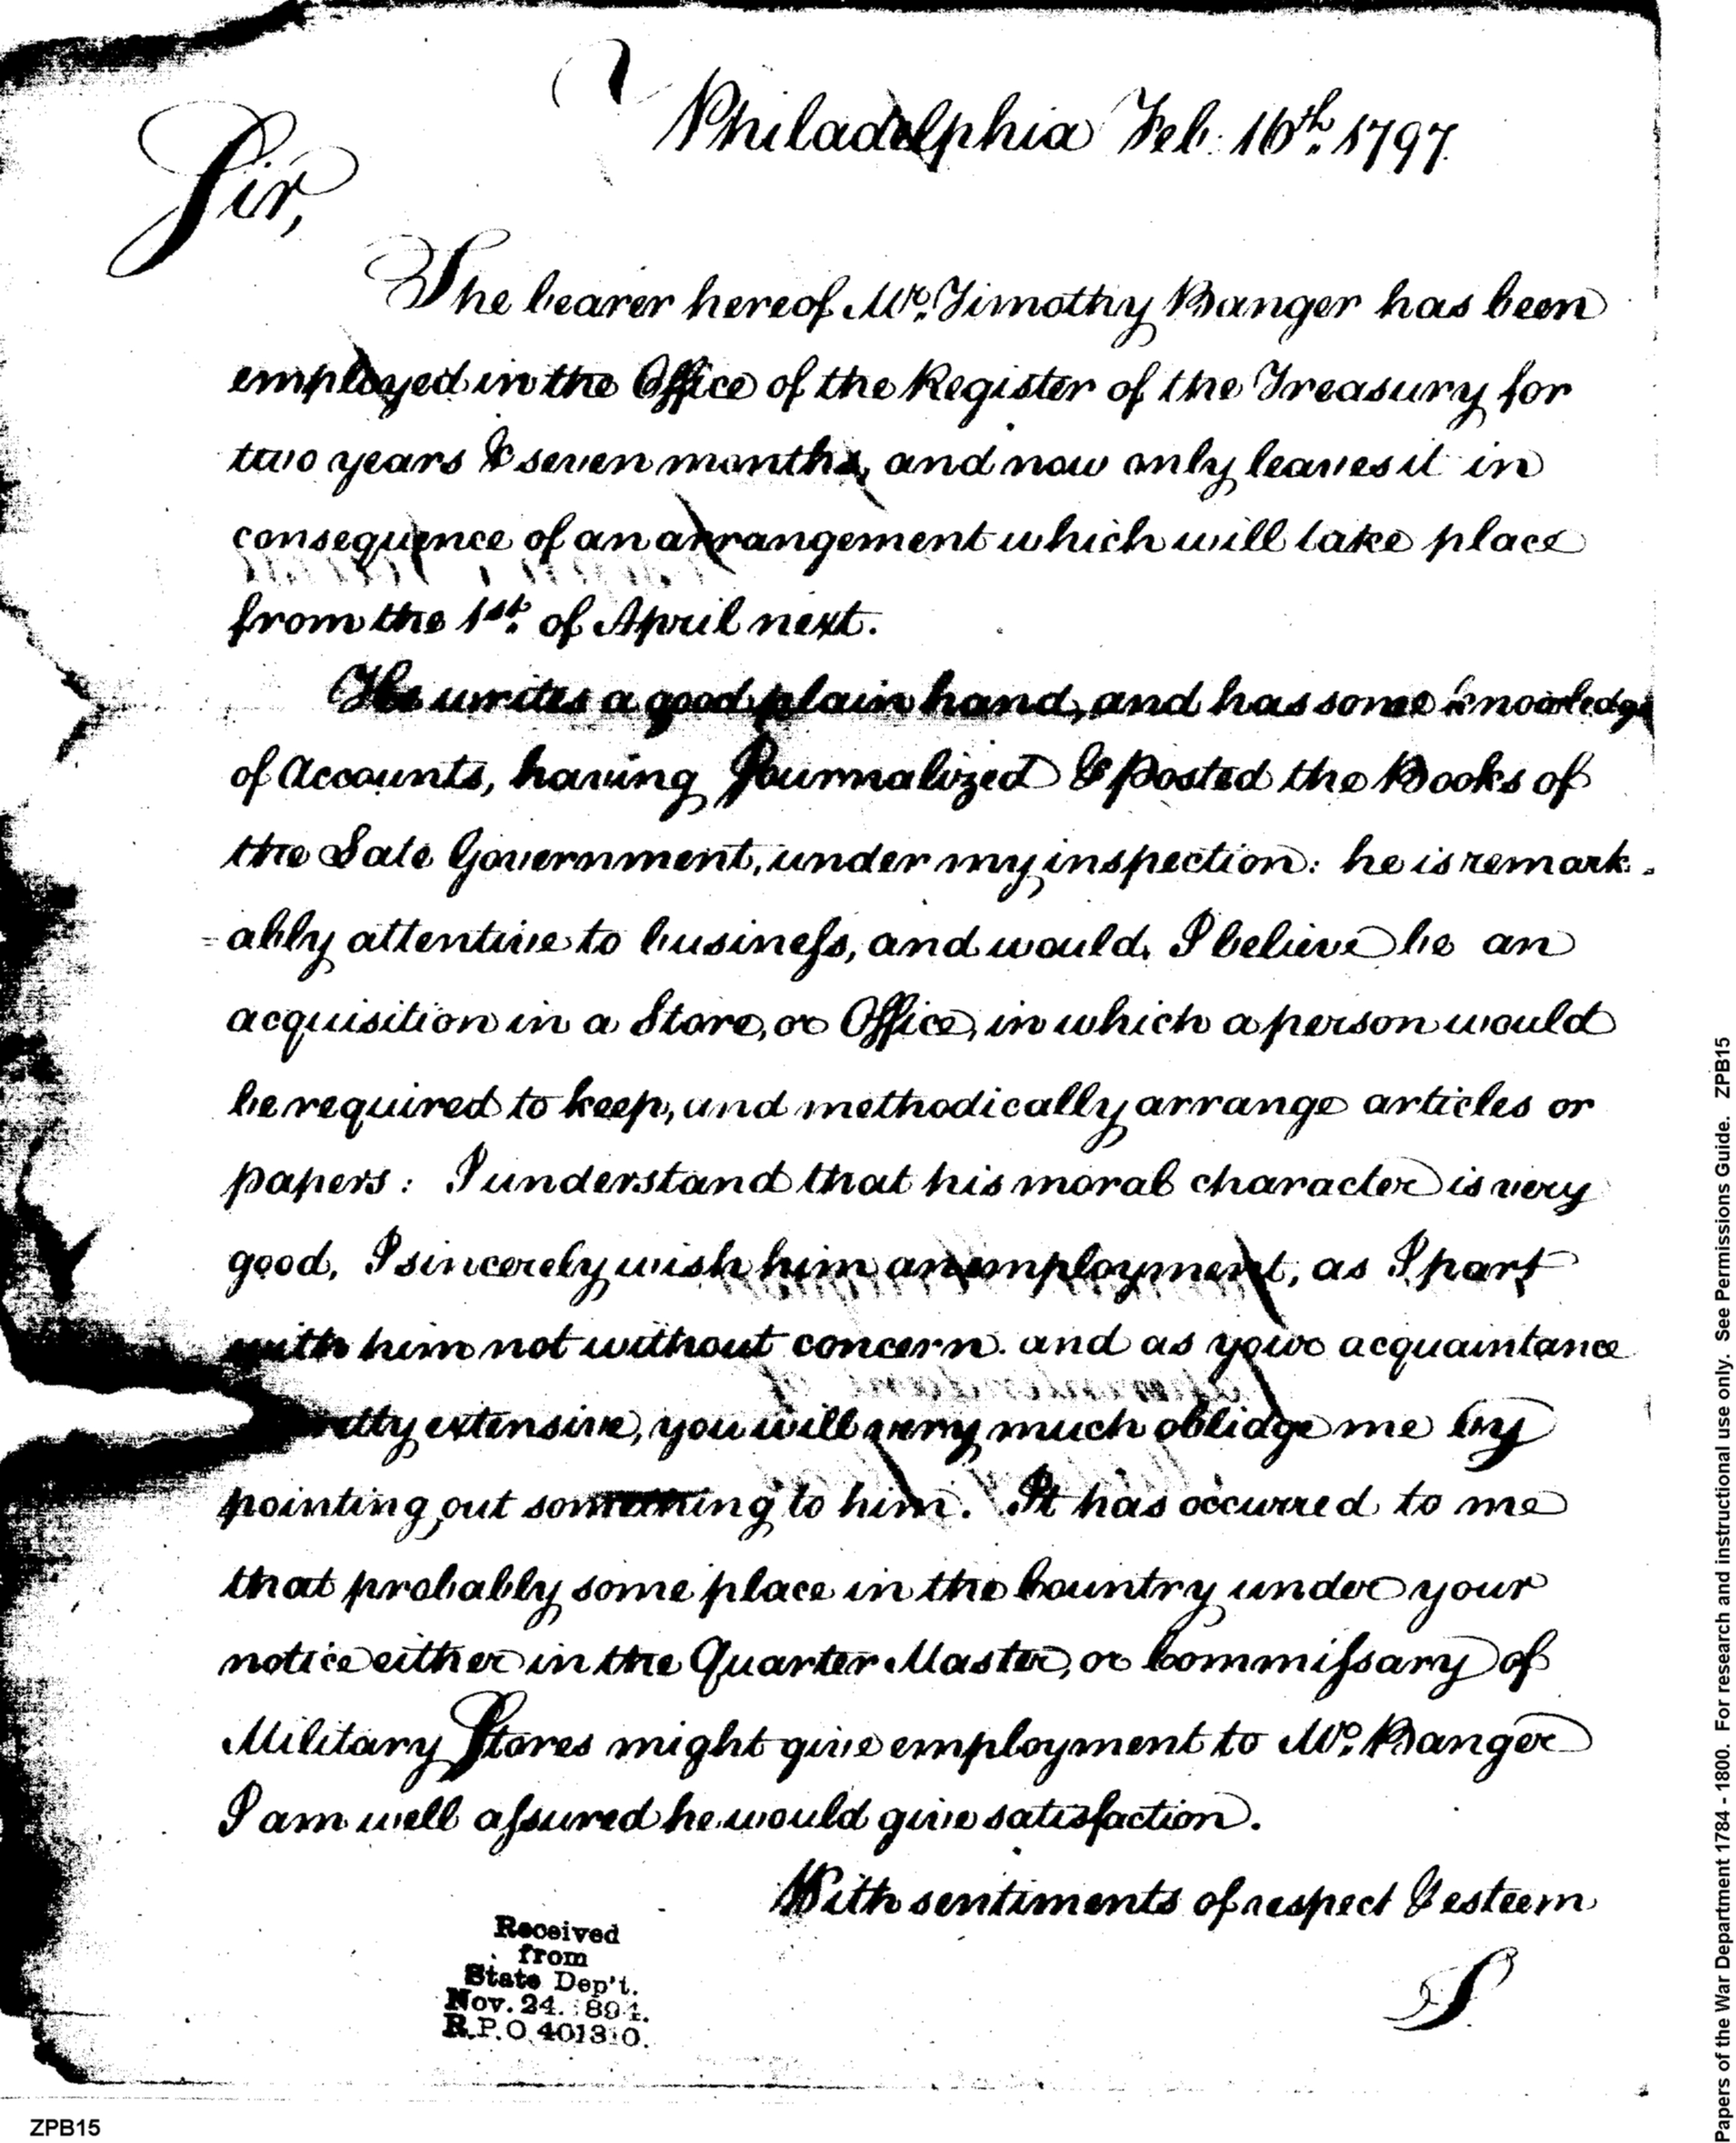 Philadelphia Feb: 16th. 1797.
Sir,
The bearer hereof Mr. Timothy Banger has been
employed in the Office of the Register of the Treasury for
two years & seven months, and now only leaves it in
consequence of an arrangement which will take place
from the 1st. of April next.
He writes a good plain hand, and has some knowledge
of Accounts, having Journalized & Posted the Books of
the Late Government, under my inspection: he is remark-
=ably attentive to business, and would, I believe be an
acquisition in a Store, or Office, in which a person would
be required to keep, and methodically arrange articles or
papers: I understand that his moral character is very
good, I sincerely wish him an employment, as I part
with him not without concern. and as your acquaintance
extensive, you will very much oblidge me by
pointing out something to him. It has occurred to me
that probably some place in the Country under your
notice either in the Quarter Master, or Commissary of
Military Stores might give employment to Mr. Banger
I am well assured he would give satisfaction.
With sentiments of respect & esteem
Received
from
State Dep't.
Nov. 24. 1894.
R.P.O. 401310.
ZPB15
Papers of the War Department 1784 - 1800. For research and instructional use only. See Permissions Guide. ZPB15